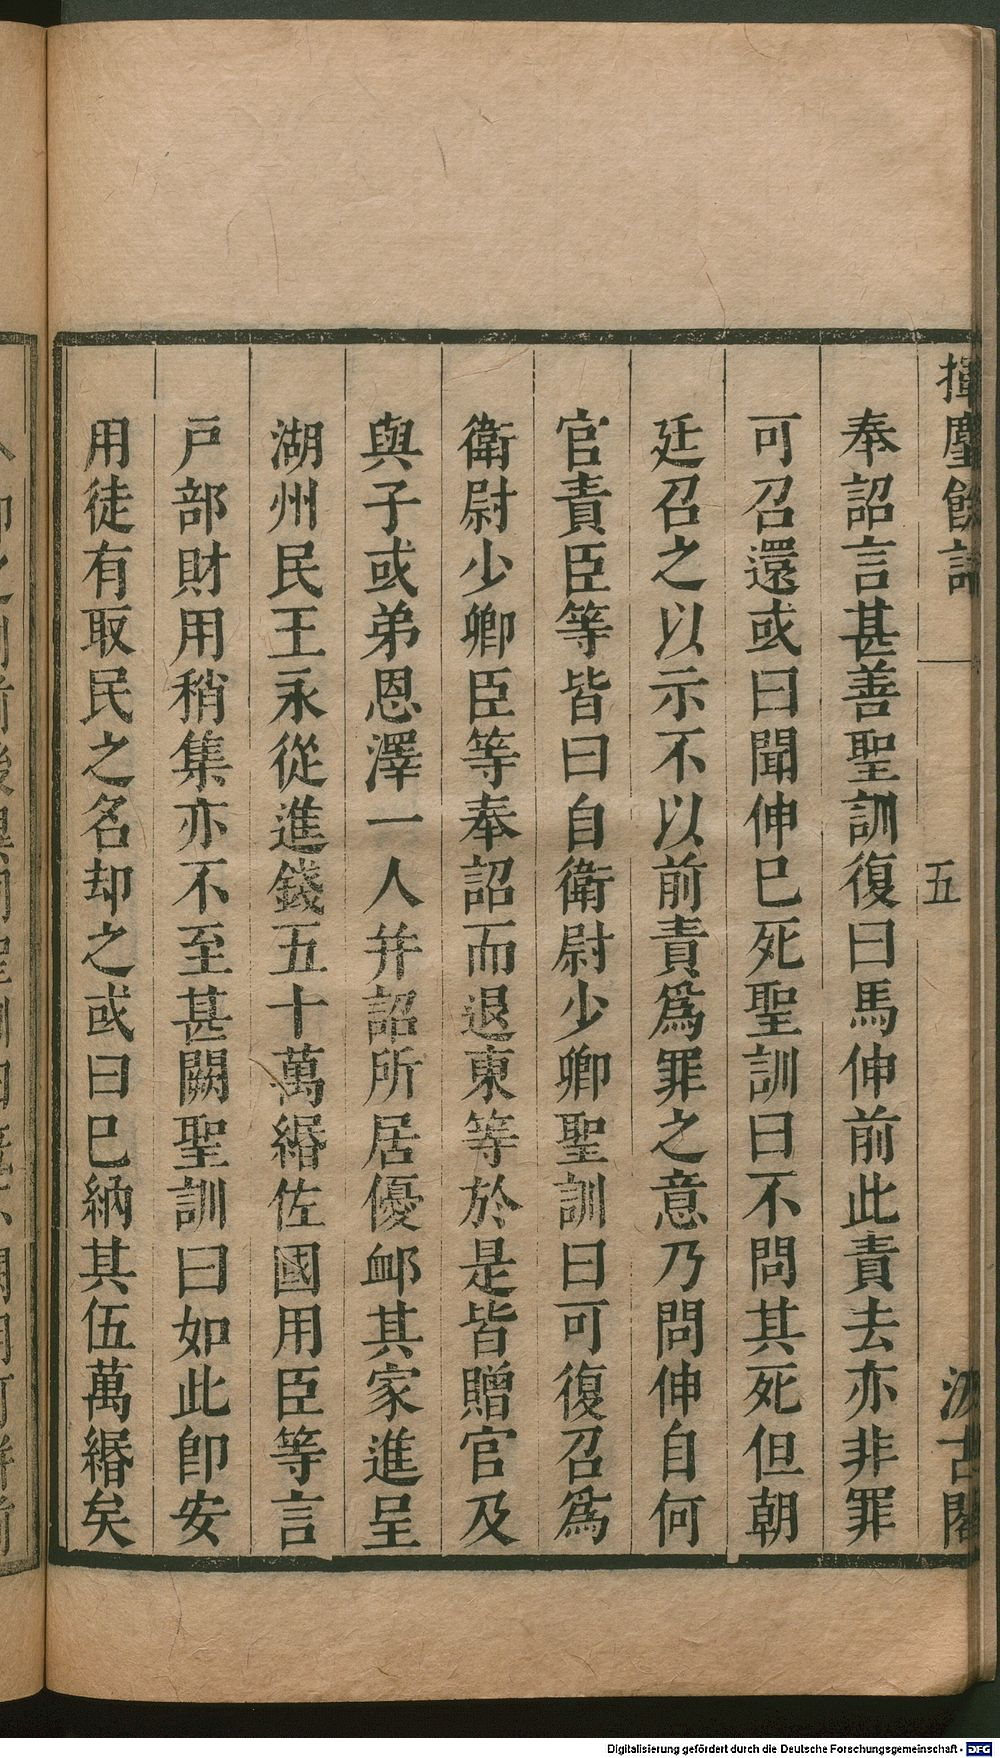 揮麈餘話
一
五
汲古閣
奉詔言甚善聖訓復曰馬伸前此責去亦非罪
可召還或曰聞伸巳死聖訓曰不問其死但朝
廷召之以示不以前責爲罪之意乃問伸自何
官責臣等皆曰自衛尉少卿聖訓曰可復召爲
衛尉少卿臣等奉詔而退東等於是皆贈官及
與子或弟恩澤一人并詔所居優衈其家進呈
湖州民王永從進錢五十萬緡佐國用臣等言
戸部財用稍集亦不至甚闕聖訓曰如此卽安
用徒有取民之名却之或曰巳納其伍萬緡矣
Digitalisierung gefördert durch die Deutsche Forschungsgemeinschaft - DFG